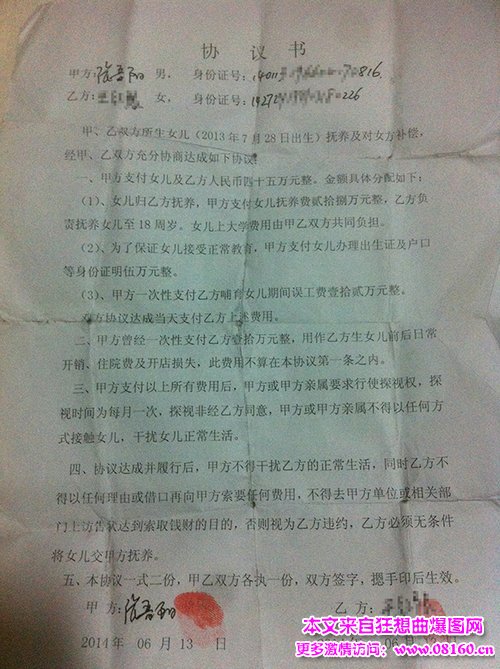 协议书
甲方: 男, 身份证号: 816.
乙方: 女, 身份证号: 226
甲、乙双方所生女儿（2013年7月28日出生）抚养及对女方补偿，
经甲、乙双方充分协商达成如下协议：
一、甲方支付女儿及乙方人民币四十五万元整。金额具体分配如下：
（1）、女儿归乙方抚养，甲方支付女儿抚养费贰拾捌万元整，乙方负
责抚养女儿至18周岁。女儿上大学费用由甲乙双方共同负担。
（2）、为了保证女儿接受正常教育，甲方支付女儿办理出生证及户口
等身份证明伍万元整。
（3）、甲方一次性支付乙方哺育女儿期间误工费壹拾贰万元整。
双方协议达成当天支付乙方上述费用。
二、甲方曾经一次性支付乙方壹拾万元整，用作乙方生女儿前后日常
开销、住院费及开店损失，此费用不算在本协议第一条之内。
三、甲方支付以上所有费用后，甲方或甲方亲属要求行使探视权，探
视时间为每月一次，探视非经乙方同意，甲方或甲方亲属不得以任何方
式接触女儿，干扰女儿正常生活。
四、协议达成并履行后，甲方不得干扰乙方的正常生活，同时乙方不
得以任何理由或借口再向甲方索要任何费用，不得去甲方单位或相关部
门上访告状达到索取钱财的目的，否则视为乙方违约，乙方必须无条件
将女儿交甲方抚养。
五、本协议一式二份，甲乙双方各执一份，双方签字，摁手印后生效。
甲方: 乙方:
2014年 06月 13日 06月
本文来自狂想曲爆图网
更多激情访问：www.08160.cn